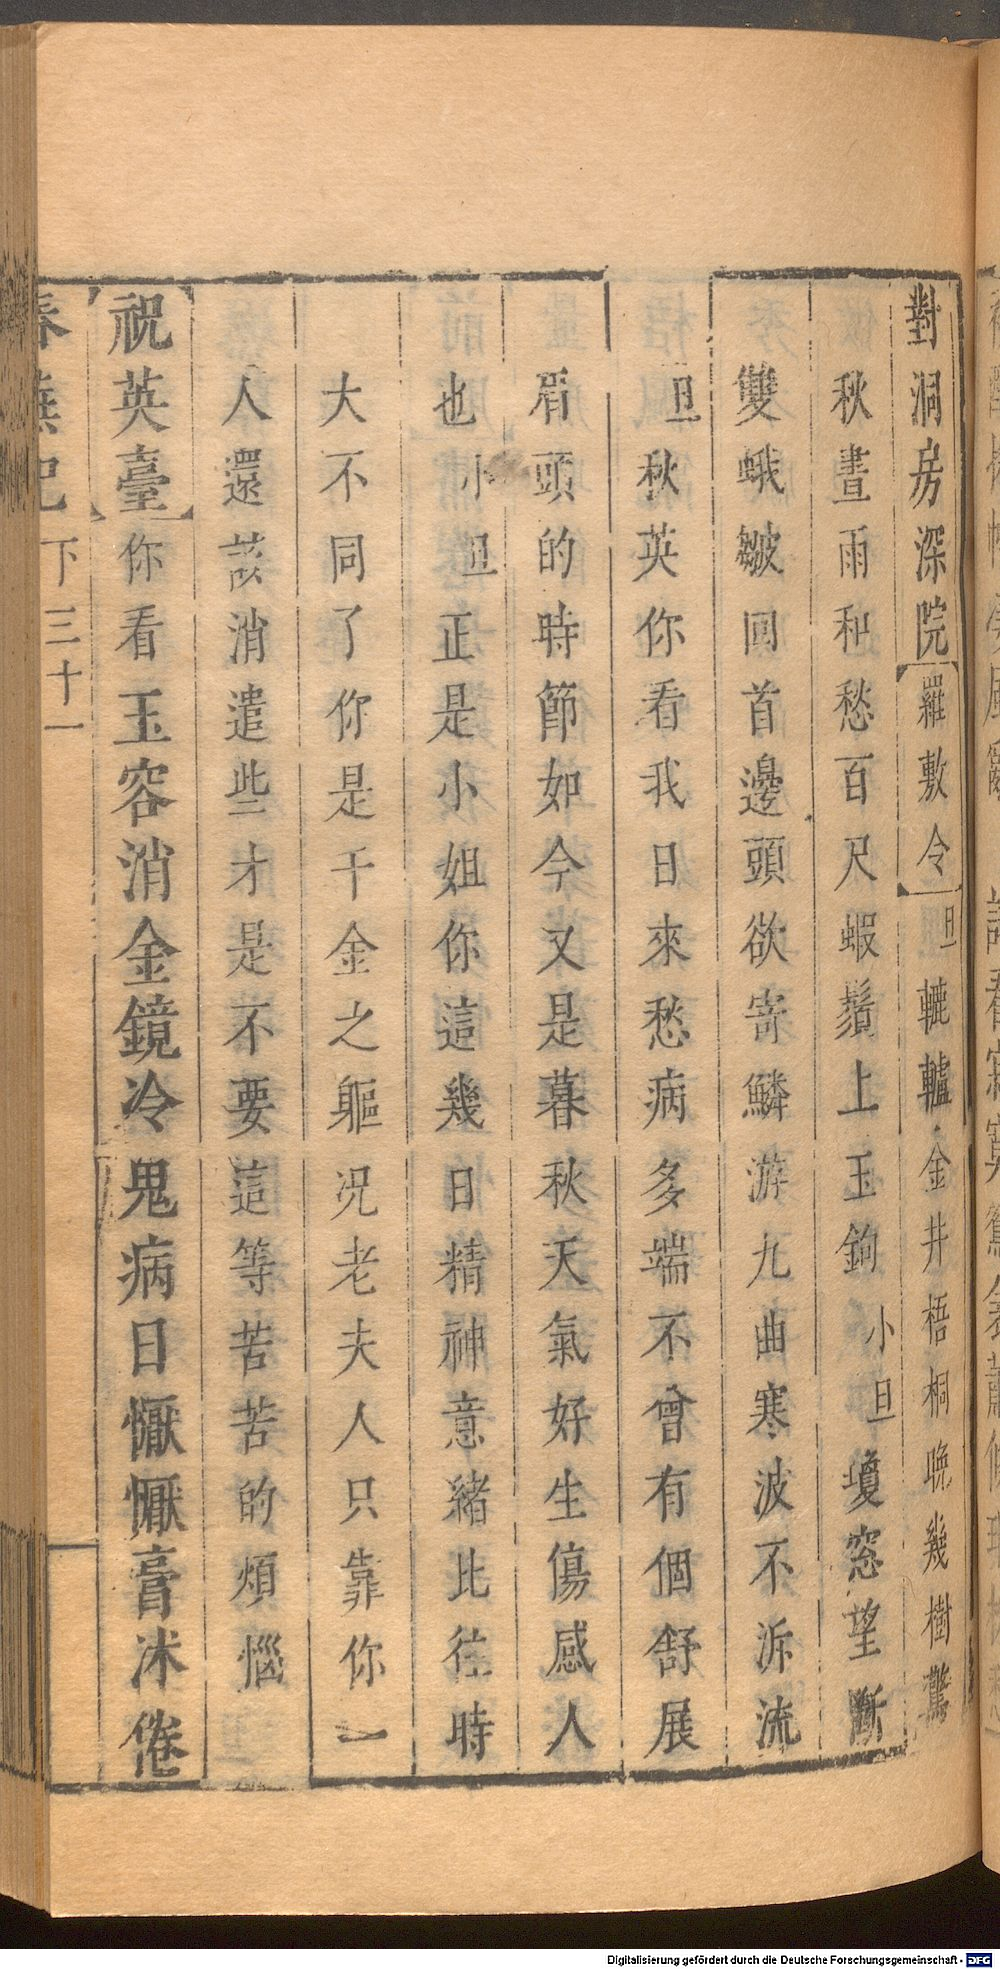 對洞房深院【羅敷令】旦轆轤金井梧桐晚幾樹驚
秋晝雨和愁百尺蝦鬚上玉鉤小旦瓊窓望斷
雙蛾皺回首邊頭欲寄鱗游九曲寒波不泝流
旦秋英你看我日來愁病多端不曾有個舒展
眉頭的時節如今又是暮秋天氣好生傷感人
也小旦正是小姐你這幾日精神意緒比往時
大不同了你是千金之軀况老夫人只靠你一
人還該消遣些才是不要這等苦苦的煩惱
【祝英臺】你看玉容消金鏡冷鬼病日懨懨膏沐倦
春蕪記 下 三十一
Digitalisierung gefördert durch die Deutsche Forschungsgemeinschaft - DFG